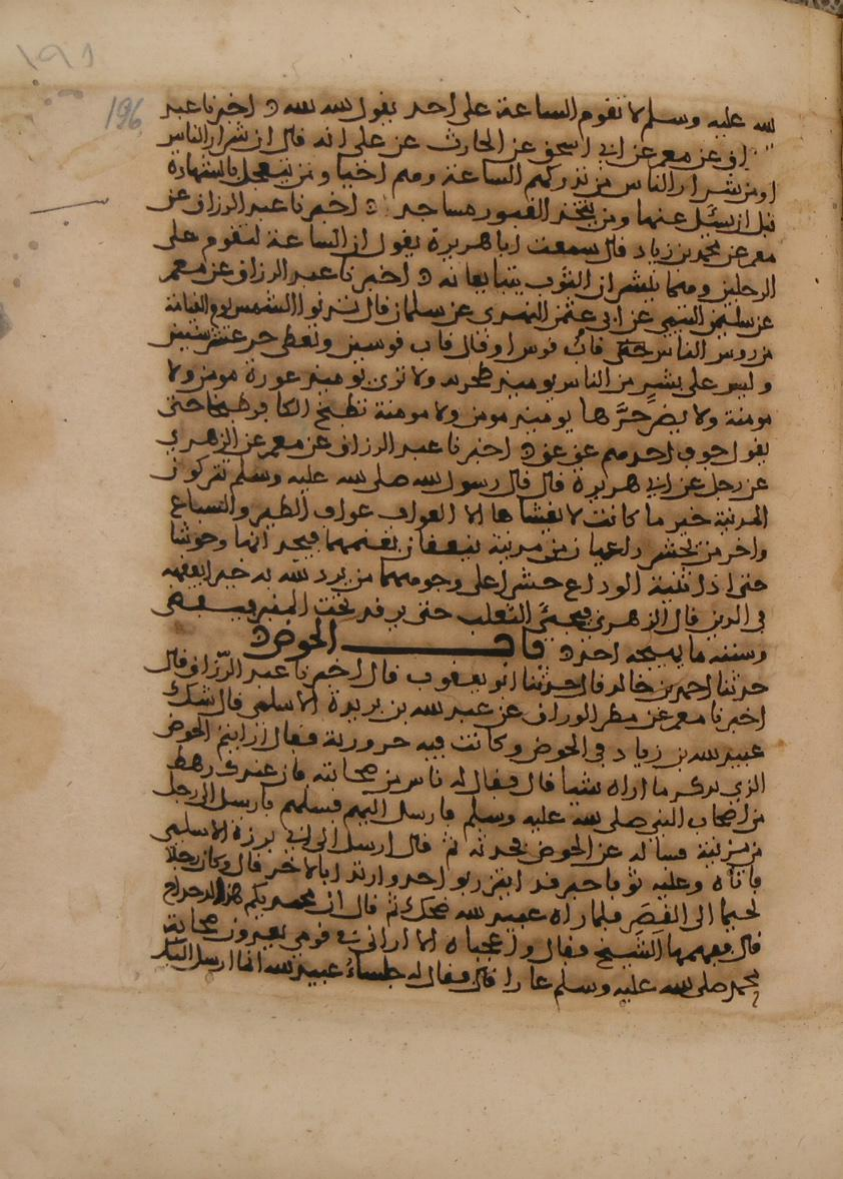 ١٩٦
196
الله عليه وسلم لا تقوم الساعة على احد يقول الله الله ه اخبرنا عبد
الرزاق عن معمر عن ابي اسحق عن الحارث عن علي انه قال ان شرار الناس
او من شرار الناس من تدركهم الساعة وهم احيا ومن يتعجل بالشهادة
قبل ان يسئل عنها ومن يتخذ القبور مساجد ه اخبرنا عبد الرزاق عن
معمر عن محمد بن زياد قال سمعت ابا هريرة يقول ان الساعة لتقوم على
الرجلين وهما ينشران الثوب يتبايعانه ه اخبرنا عبد الرزاق عن معمر
عن سليمن التيمي عن ابي عثمن النهدي عن سلمان قال تدنوا الشمس يوم القيامة
من روس الناس حتى قاب قوس او قال قاب قوسين وتعطى حر عشر سنين
وليس على بشر من الناس يوميذ طحربه ولا ترى يوميذ عورة مومن ولا
مومنة ولا يضر حرها يوميذ مومن ولا مومنة تطبخ الكافر طبخا حتى
يقول جوف احدهم غق غق ه اخبرنا عبد الرزاق عن معمر عن الزهري
عن رجل عن ابي هريرة قال قال رسول الله صلى الله عليه وسلم تتركون
المدينة خير ما كانت لا يغشاها الا العواف عواف الطير والسباع
واخر من يحشر راعيان من مزينة ينعقان بغنمهما فيجدانها وحوشا
حتى اذا ثنية الوداع حشرا على وجوههما من يرد الله به خيرا يفقهه
في الدين قال الزهري فيجئ الثعلب حتى يرقد تحت المنبر فيقضي
وسنته ما يهيجه احد ه باب الحوض ه
حدثنا احمد بن خالد قال حدثنا ابو يعقوب قال اخبرنا عبد الرزاق قال
اخبرنا معمر عن مطر الوراق عن عبد الله بن بريدة الاسلمي قال شك
عبيد الله بن زياد في الحوض وكانت فيه حرورية فقال ارايتم الحوض
الذي يذكر ما اراه شيا قال فقال له ناس من صحابته فان عندك رهطا
من اصحاب النبي صلى الله عليه وسلم فارسل اليهم فسلهم فارسل الى رجل
من مزينة فساله عن الحوض فحدثه ثم قال ارسل الى ابي برزة الاسلمي
فاتاه وعليه ثوبا حبر قد ايتزر بواحد وارتدا بالاخر قال وكان رجلا
لحيما الى القصر فلما راه عبيد الله ضحك ثم قال ان محمديكم هذا الدحداح
قال ففهمها الشيخ فقال واعجباه الا اراني في قوم يعيرون صحابة
محمد صلى الله عليه وسلم عارا قال فقال له جلساء عبيد الله انما ارسل اليك